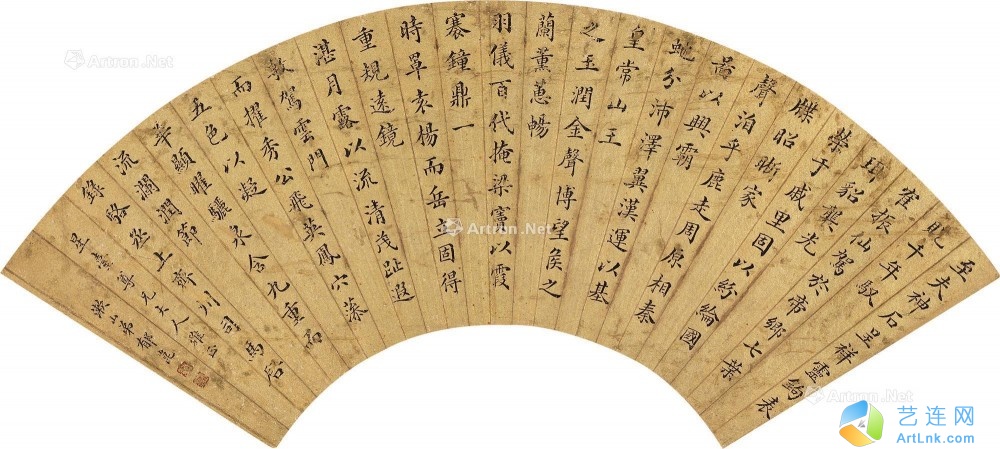 至夫神石呈祥靈鉤表
貺千年馭
隺振仙駕於帝鄉七葉
珥貂襲光
榮于戚里固以紛綸國
牒昭晰家
聲洎乎鹿走周原相秦
啚以興霸
虵分沛澤翼漢運以基
皇常山王
之玉潤金聲博望侯之
蘭薰蕙暢
羽儀百代掩梁竇以霞
褰鐘鼎一
時罩袁楊而岳立固得
重規遠鏡
湛月露以流清茂趾遐
敷駕雲門
而擢秀公飛英鳳穴藻
五色以凝
華顯曜驪泉含九重而
流瀾潤節
上齊川司馬
尊兄大人雅正
山弟郁崑
Artron.Net
Artron.Net
Artron.Net
Artron.Net
艺连网
ArtLnk.com